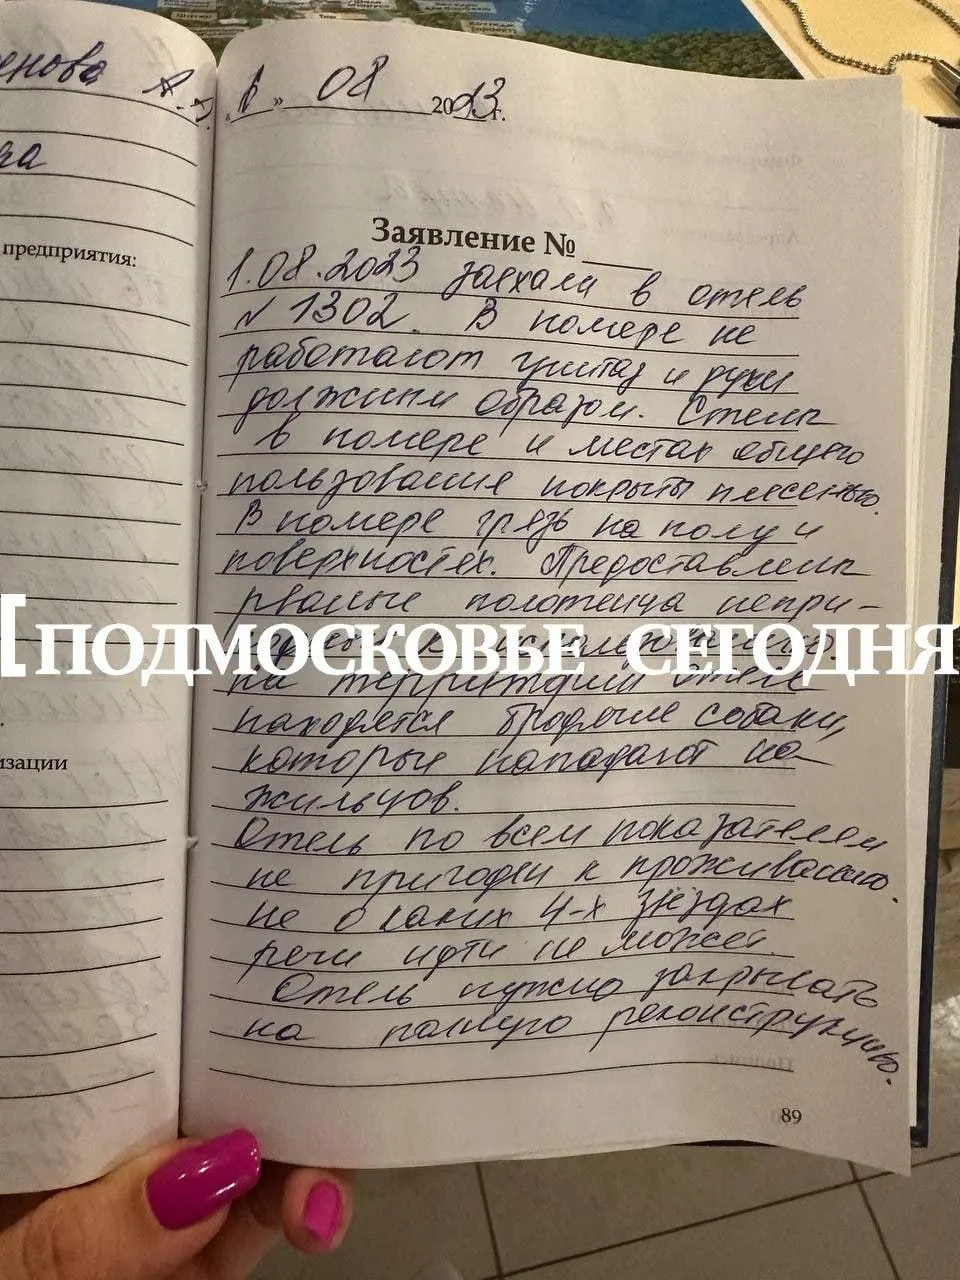 енова А.
ча
предприятия:
изации
"1" 08 2023 г.
Заявление №
1.08.2023 заехали в отель
№ 1302. В номере не
работают унитаз и душ
должным образом. Стены
в номере и местах общего
пользования покрыты плесенью.
В номере грязь на полу и
поверхностях. Предоставлены
рваные полотенца непри-
[ПОДМОСКОВЬЕ СЕГОДНЯ
на территории отеля
находятся бродячие собаки,
которые нападают на
жильцов.
Отель по всем показателям
не пригоден к проживанию.
не о каких 4-х звёздах
речи идти не может.
Отель нужно закрывать
на полную реконструкцию.
89